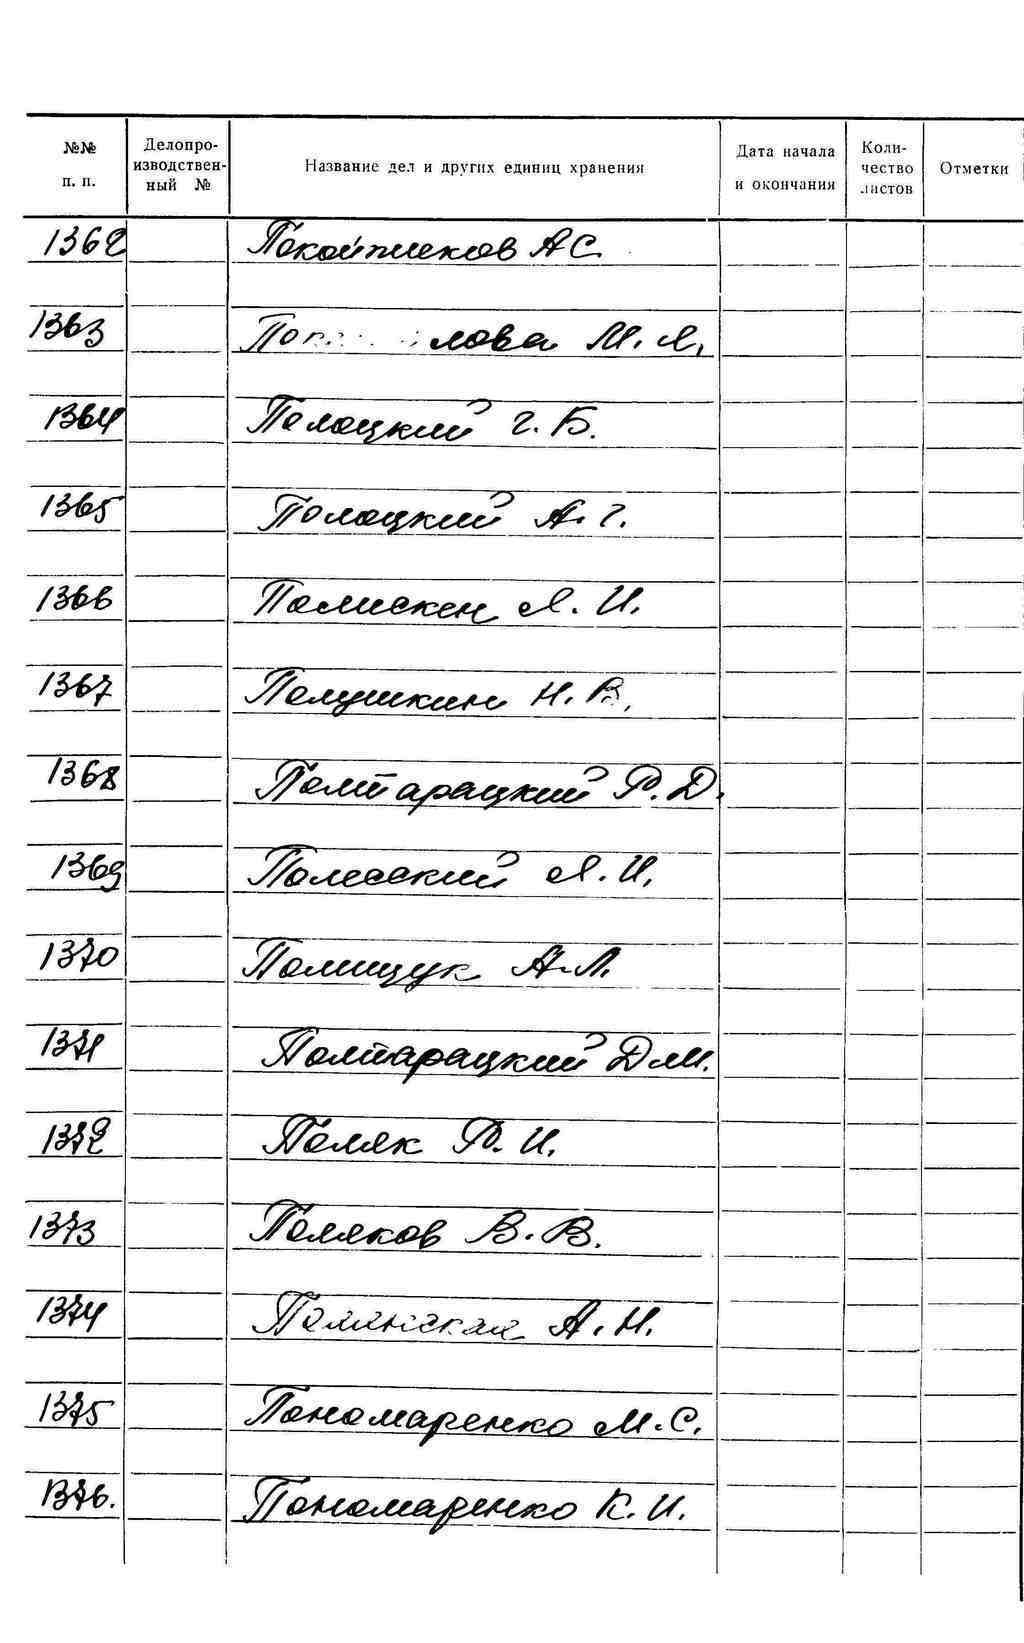 №№ п. п. Делопроизводственный № Название дел и других единиц хранения Дата начала и окончания Количество листов Отметки
1362 Покойников А С.
1363 М. Я.
1364 Полоцкий Г. Б.
1365 Полоцкий А. Г.
1366 Я. И.
1367 Полушкин Н. В.
1368 Полтарацкий Р. Д.
1369 Полесский Я. И.
1370 Полищук А. Л.
1371 Полтарацкий Д М.
1372 Поляк Р. И.
1373 Поляков В. В.
1374 Полянская А. Н.
1375 Пономаренко М. С.
1376. Пономаренко К. И.